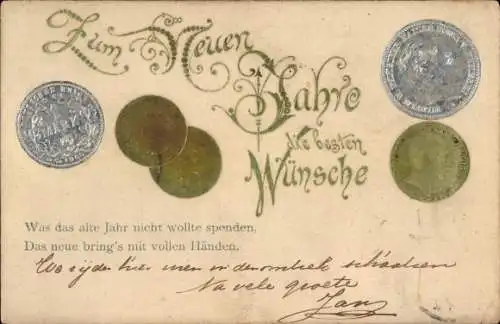 Zum Neuen
Jahre
die besten
Wünsche
Was das alte Jahr nicht wollte spenden,
Das neue bring's mit vollen Händen.
hier men in de omtrek schaatsen
Na vele groete
Jan